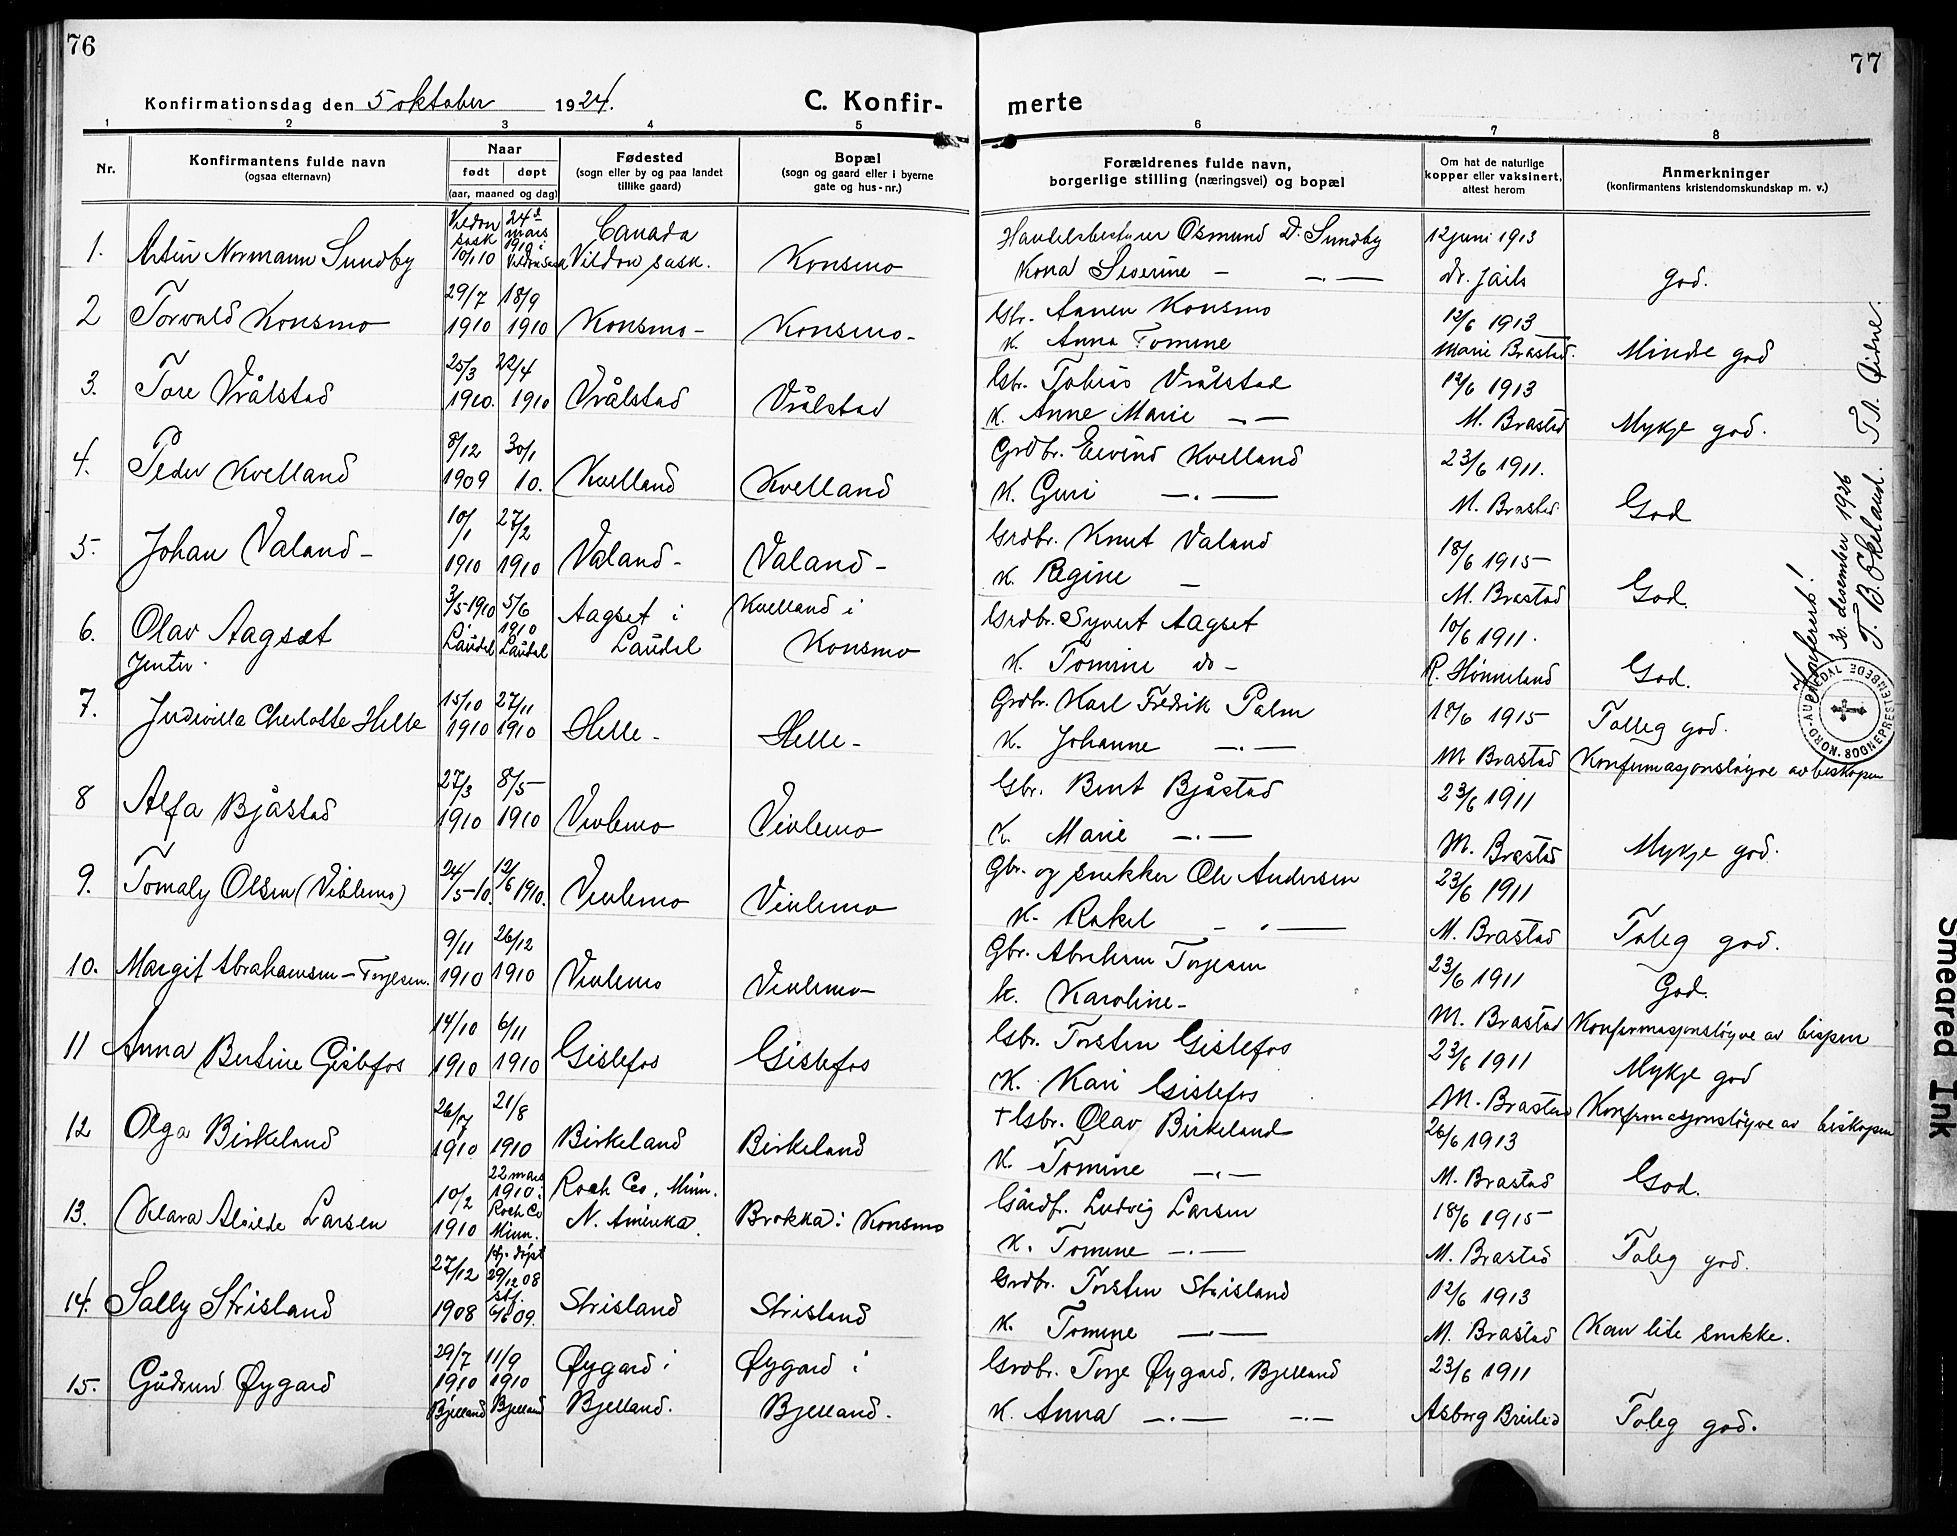 76
77
Konfirmationsdag den 5 oktober 1924.
C. Konfir-
merte
1 2 3 4 5 6 7 8
Nr.
Konfirmantens fulde navn
(ogsaa efternavn)
Naar
født døpt
(aar, maaned og dag)
Fødested
(sogn eller by og paa landet
tillike gaard)
Bopæl
(sogn og gaard eller i byerne
gate og hus-nr.)
Forældrenes fulde navn,
borgerlige stilling (næringsvei) og bopæl
Om hat de naturlige
kopper eller vaksinert,
attest herom
Anmerkninger
(konfirmantens kristendomskundskap m. v.)
1. Artur Normann Sundby
Vildon sask 10/1 10
24d mars 1910 i Vildon Sask
Canada
Vildon sask.
Konsmo
Handelsbestyrer Osmund D. Sundby
Kona Severine —
12 juni 1913
dr. Jails
god.
2 Torvald Konsmo
29/7 1910
18/9 1910
Konsmo-
Konsmo-
Gbr. Aanen Konsmo
K. Anna Tomine
12/6 1913
Marie Brastad.
Mindre god
3. Tore Vrålstad
25/3 1910.
22/4 1910
Vrålstad
Vrålstad
Gbr. Tobias Vrålstad
K. Anne Marie —
12/6 1913
M. Brastad
Mykje god.
4. Peder Kvelland
8/12 1909
30/1 10.
Kvelland
Kvelland
Grdbr. Eivind Kvelland
K. Guri —.—
23/6 1911.
M. Brastad
God
5. Johan Valand-
10/1 1910
27/2 1910
Valand-
Valand-
Grdbr. Knut Valand
K. Regine —
18/6 1915
M. Brastad
God.
6. Olav Aagset
3/5-1910 Laudal
5/6 1910 Laudal
Aagset i
Laudal
Kvelland i
Konsmo
Grdbr. Syvert Aagset
K. Tomine do-
10/6 1911.
R. Hønneland
God.
Jenter.
7. Judevilla Charlotte Helle
15/10 1910
27/11 1910
Helle-
Helle-
Grdbr. Karl Fredrik Palm
K. Johanne —.—
18/6 1915
M Brastad
Tolleg god.
Konfirmasjonsløyve av biskopen
8 Alfa Bjåstad
27/3 1910
8/5 1910
Vivlemo
Vivlemo
Gbr. Bent Bjåstad
K. Marie —.—
23/6 1911
M. Brastad
Mykje god.
9. Tomaly Olsen (Viblemo)
24/5-10.
12/6 1910.
Vivlemo
Vivlemo
Gbr. og snekker Ole Andersen
K. Rakel —.—
23/6 1911
M. Brastad
Toleg god.
10. Margit Abrahamsen-Torjesen.
9/11 1910
26/12 1910
Vivlemo
Vivlemo-
Gbr. Abraham Torjesen
K. Karoline-
23/6 1911
M. Brastad
God.
Konfirmasjonsløyve av bispen
11 Anna Bertine Gislefos
14/10 1910
6/11 1910
Gislefos
Gislefos
Gbr. Torsten Gislefos
K. Kari Gislefos
23/6 1911
M. Brastad
Mykje god
Konfirmasjonsløyve av biskopen
12 Olga Birkeland
26/7 1910
21/8 1910
Birkeland
Birkeland
+ Gbr. Olav Birkeland
K. Tomine —.—
26/6 1913
M. Brastad
God.
13. Klara Alvilde Larsen
10/2 1910
22 mars 1910 i Roch Co Minn.
Roch Co, Minn.
N. Amerika.
Brokka i Konsmo
Gårdf. Ludvig Larsen
K. Tomine —.—
18/6 1915
M. Brastad
Toleg god.
14. Sally Strisland
27/12 1908
Hj. døpt 29/12 08 stf. 6/6 09.
Strisland
Strisland
Grdbr. Torsten Strisland
K. Tomine —.—
12/6 1913
M. Brastad
Kan lite snakke.
15. Gudrun Øygard
29/7 1910 Bjelland
11/9 1910 Bjelland
Øygard i
Bjelland.
Øygard i
Bjelland.
Grdbr. Torje Øygard, Bjelland
K. Anna —.— —.—
23/6 1911
Asborg Breiland
Toleg god.
Konferert!
30. desember 1926
T. B. Ekeland. Ts. Øidne.
NORD-AUDNEDAL SOGNEPRESTEMBEDE
Smeared Ink